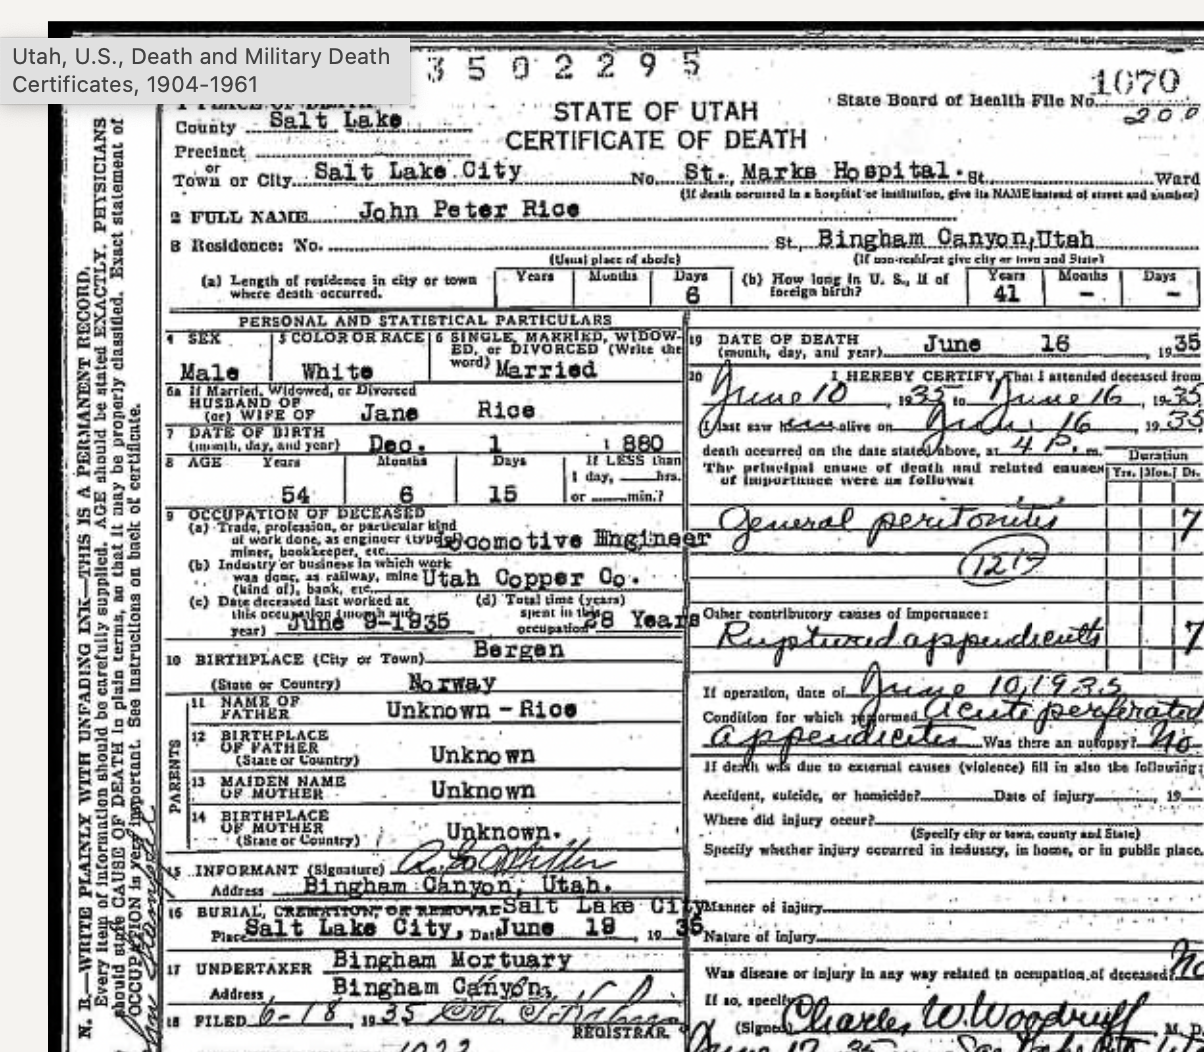 Utah, U.S., Death and Military Death
Certificates, 1904-1961
3502295
1070
State Board of Health File No.
200
1 PLACE OF DEATH
STATE OF UTAH
CERTIFICATE OF DEATH
County Salt Lake
Precinct
or
Town or City Salt Lake City No. St. Marks Hospital. St. Ward
(If death occurred in a hospital or institution, give its NAME instead of street and number)
2 FULL NAME John Peter Rice
3 Residence: No. St., Bingham Canyon,Utah
(Usual place of abode) (If non-resident give city or town and State)
(a) Length of residence in city or town where death occurred. Years Months Days 6
(b) How long in U. S., if of foreign birth? Years 41 Months - Days -
PERSONAL AND STATISTICAL PARTICULARS
4 SEX Male
5 COLOR OR RACE White
6 SINGLE, MARRIED, WIDOW-
ED, or DIVORCED (Write the
word) Married
6a If Married, Widowed, or Divorced
HUSBAND OF
(or) WIFE OF Jane Rice
7 DATE OF BIRTH
(month, day, and year) Dec. 1 1880
8 AGE Years Months Days If LESS than
1 day, hrs.
54 6 15 or min.?
9 OCCUPATION OF DECEASED
(a) Trade, profession, or particular kind
of work done, as engineer (type)
miner, bookkeeper, etc. Locomotive Engineer
(b) Industry or business in which work
was done, as railway, mine
(kind of), bank, etc. Utah Copper Co.
(c) Date deceased last worked at
this occupation (month and
year) June 9-1935
(d) Total time (years)
spent in this
occupation 28 Years
10 BIRTHPLACE (City or Town) Bergen
(State or Country) Norway
PARENTS
11 NAME OF
FATHER Unknown - Rice
12 BIRTHPLACE
OF FATHER
(State or Country) Unknown
13 MAIDEN NAME
OF MOTHER Unknown
14 BIRTHPLACE
OF MOTHER
(State or Country) Unknown.
15 INFORMANT (Signature)
Address Bingham Canyon, Utah.
16 BURIAL, CREMATION, OR REMOVAL Salt Lake City
Place Salt Lake City, Date June 19, 1935
17 UNDERTAKER Bingham Mortuary
Address Bingham Canyon,
18 FILED 6-18, 1935
REGISTRAR.
19 DATE OF DEATH
(month, day, and year) June 16, 1935
20 I HEREBY CERTIFY, That I attended deceased from
June 10, 1935 to June 16, 1935
I last saw him alive on June 16, 1935
death occurred on the date stated above, at 4 P. m.
The principal cause of death and related causes
of importance were as follows:
Duration
Yrs. Mos. Ds.
General peritonitis 7
Other contributory causes of importance:
Ruptured appendicitis 7
If operation, date of June 10, 1935
Condition for which performed Acute perforated
appendicitis Was there an autopsy? No
If death was due to external causes (violence) fill in also the following:
Accident, suicide, or homicide? Date of injury , 19
Where did injury occur?
(Specify city or town, county and State)
Specify whether injury occurred in industry, in home, or in public place.
Manner of injury
Nature of injury
Was disease or injury in any way related to occupation of deceased? No
If so, specify
(Signed) Charles W. Woodruff M. D.
N. B.—WRITE PLAINLY WITH UNFADING INK—THIS IS A PERMANENT RECORD.
Every item of information should be carefully supplied. AGE should be stated EXACTLY. PHYSICIANS
should state CAUSE OF DEATH in plain terms, so that it may be properly classified. Exact statement of
OCCUPATION is very important. See instructions on back of certificate.